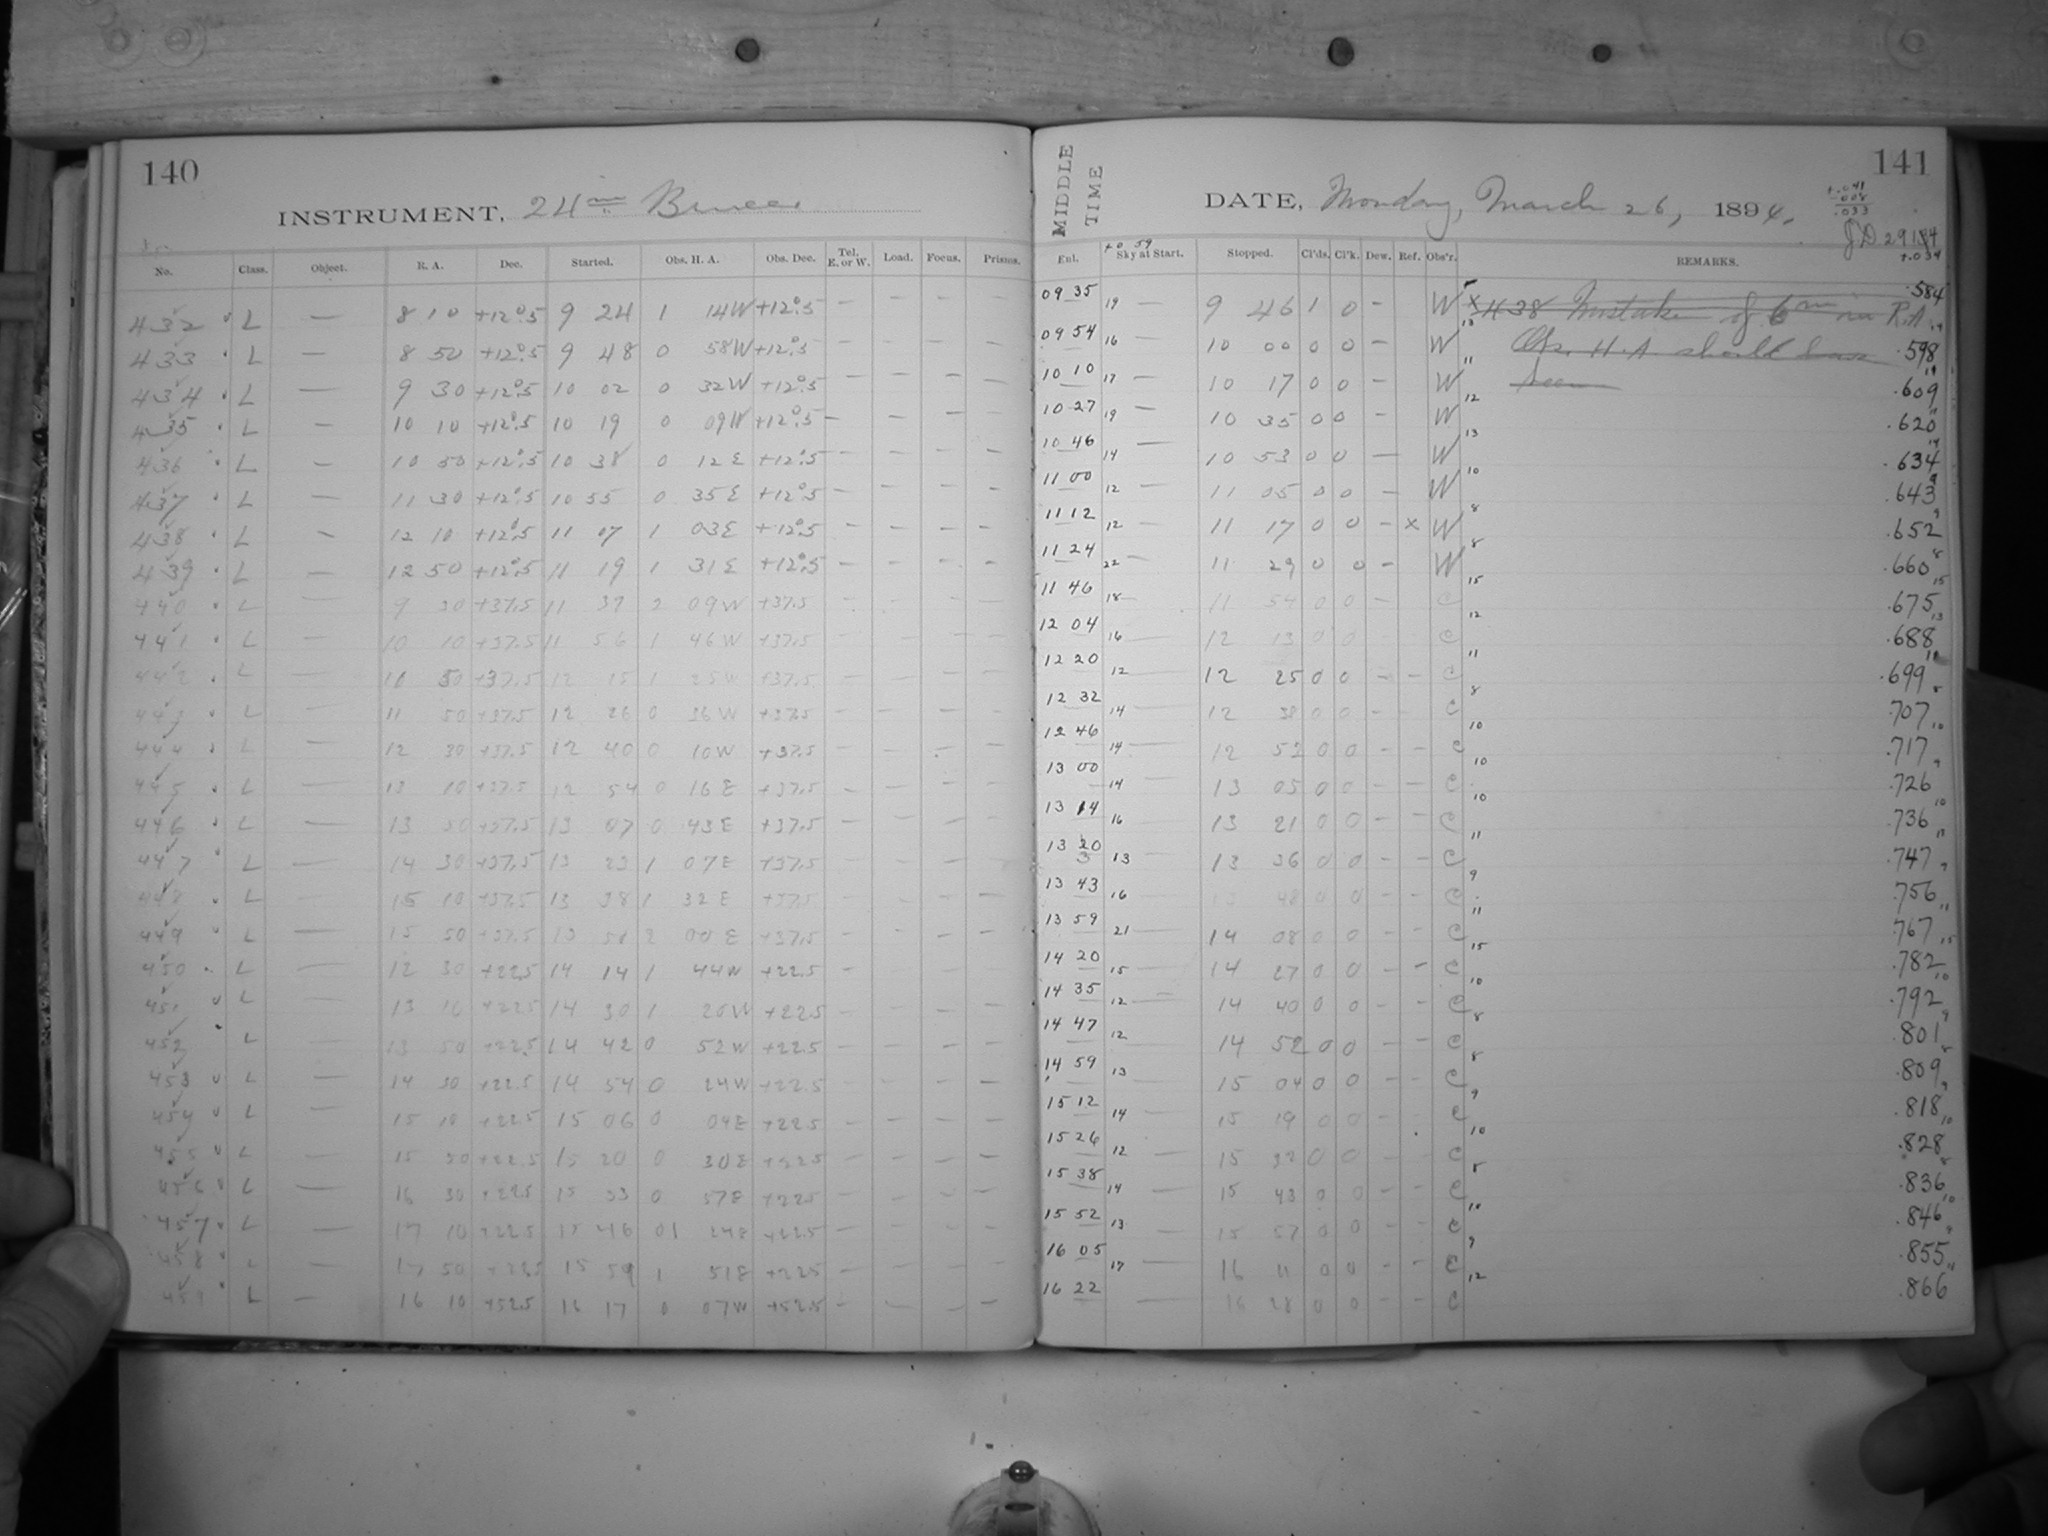 140
INSTRUMENT, 24in Bruce.
No. Class. Object. R. A. Dec. Started. Obs. H. A. Obs. Dec. Tel. E. or W. Load. Focus. Prisms.
432 L — 8 10 +12°.5 9 24 1 14W +12°.5 — — — —
433 L — 8 50 +12°.5 9 48 0 58W +12°.5 — — — —
434 L — 9 30 +12°.5 10 02 0 32W +12°.5 — — — —
435 L — 10 10 +12°.5 10 19 0 09W +12°.5 — — — —
436 L — 10 50 +12°.5 10 38 0 12E +12°.5 — — — —
437 L — 11 30 +12°.5 10 55 0 35E +12°.5 — — — —
438 L — 12 10 +12°.5 11 07 1 03E +12°.5 — — — —
439 L — 12 50 +12°.5 11 19 1 31E +12°.5 — — — —
440 L — 9 30 +37.5 11 37 2 09W +37.5 — — — —
441 L — 10 10 +37.5 11 56 1 46W +37.5 — — — —
442 L — +37.5 12 15 1 25W +37.5 — — — —
443 L — 11 50 +37.5 12 26 0 36W +37.5 — — — —
444 L — 12 30 +37.5 12 40 0 10W +37.5 — — — —
445 L — 13 10 +37.5 12 54 0 16E +37.5 — — — —
446 L — 13 50 +37.5 13 07 0 43E +37.5 — — — —
447 L — 14 30 +37.5 13 23 1 07E +37.5 — — — —
448 L — 15 10 +37.5 13 38 1 32E +37.5 — — — —
449 L — 15 50 +37.5 13 2 00E +37.5 — — — —
450 L — 12 30 +22.5 14 14 1 44W +22.5 — — — —
451 L — 13 10 +22.5 14 30 1 20W +22.5 — — — —
452 L — 13 50 +22.5 14 42 0 52W +22.5 — — — —
453 L — 14 30 +22.5 14 54 0 24W +22.5 — — — —
454 L — 15 10 +22.5 15 06 0 04E +22.5 — — — —
455 L — 15 50 +22.5 15 20 0 30E +22.5 — — — —
456 L — 16 30 +22.5 15 33 0 57E +22.5 — — — —
457 L — 17 10 +22.5 15 46 01 24E +22.5 — — — —
458 L — 17 50 +22.5 15 59 1 51E +22.5 — — — —
459 L — 16 10 +52.5 16 17 0 07W +52.5 — — — —
141
MIDDLE TIME
DATE, Monday, March 26, 1894.
+.041
-.008
.033
JD
+.034
+0 59
Enl. Sky at Start. Stopped. Cl'ds. Cl'k. Dew. Ref. Obs'r. REMARKS.
09 35 19 — 9 46 1 0 — W x 438 Mistake of 6m in R.A. .584
09 54 16 — 10 00 0 0 — W Obs. H.A. should have .598
10 10 17 — 10 17 0 0 — W been .609
10 27 19 — 10 35 0 0 — W .620
10 46 14 — 10 53 0 0 — W .634
11 00 12 — 11 05 0 0 — W .643
11 12 12 — 11 17 0 0 — x W .652
11 24 22 — 11 29 0 0 — W .660
11 46 18 — 11 54 0 0 — C .675
12 04 16 — 12 13 0 0 C .688
12 20 12 — 12 25 0 0 — — C .699
12 32 14 — 12 38 0 0 — C .707
12 46 14 — 12 52 0 0 — — C .717
13 00 14 — 13 05 0 0 — — C .726
13 14 16 — 13 21 0 0 — — C .736
13 20 13 — 13 36 0 0 — — C .747
13 43 16 — 13 48 0 0 — — C .756
13 59 21 — 14 08 0 0 — — C .767
14 20 15 — 14 27 0 0 — — C .782
14 35 12 — 14 40 0 0 — — C .792
14 47 12 — 14 52 0 0 — — C .801
14 59 13 — 15 04 0 0 — — C .809
15 12 14 — 15 19 0 0 — — C .818
15 26 12 — 15 32 0 0 — — C .828
15 38 14 — 15 43 0 0 — — C .836
15 52 13 — 15 57 0 0 — — C .846
16 05 17 — 16 11 0 0 — — C .855
16 22 — 16 28 0 0 — — C .866